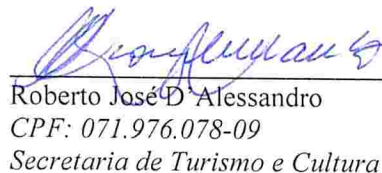 Roberto José D'Alessandro
CPF: 071.976.078-09
Secretaria de Turismo e Cultura